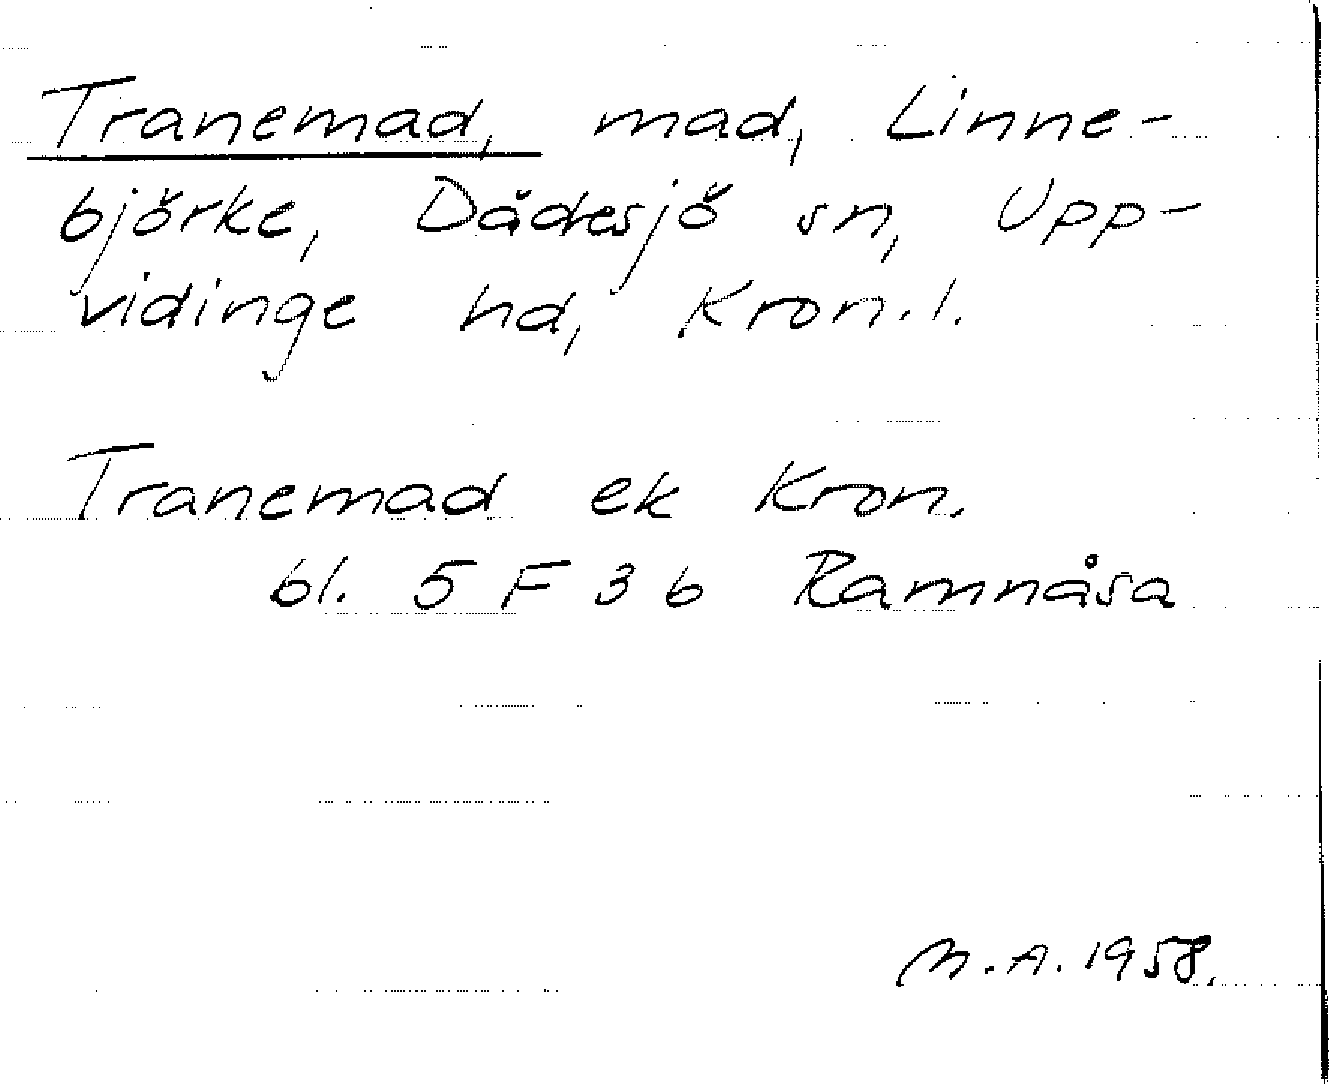 Tranemad, mad, Linne-
björke, Dädesjö sn, Upp-
vidinge hd, Kron.l.
Tranemad ek Kron.
bl. 5 F 3 b Ramnåsa
M.A. 1958.